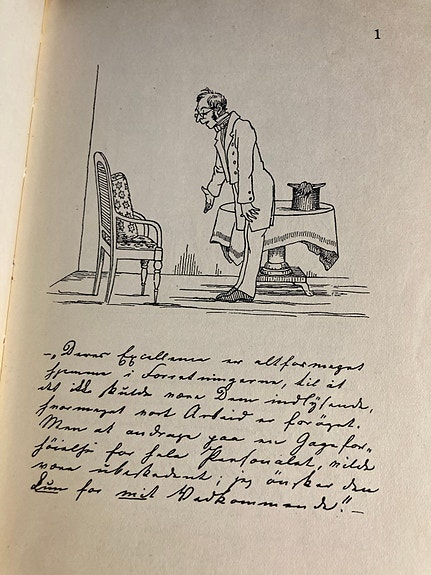 1
–„Deres Excellence er altformeget
hjemme i Forretningerne, til at
det ikke skulde være Dem indlysende,
hvormeget vort Arbeid er forøget.
Men at andrage paa en Gagefor-
høielse for hele Personalet, vilde
være ubeskedent; jeg önsker den
kun for mit Vedkommende.”–